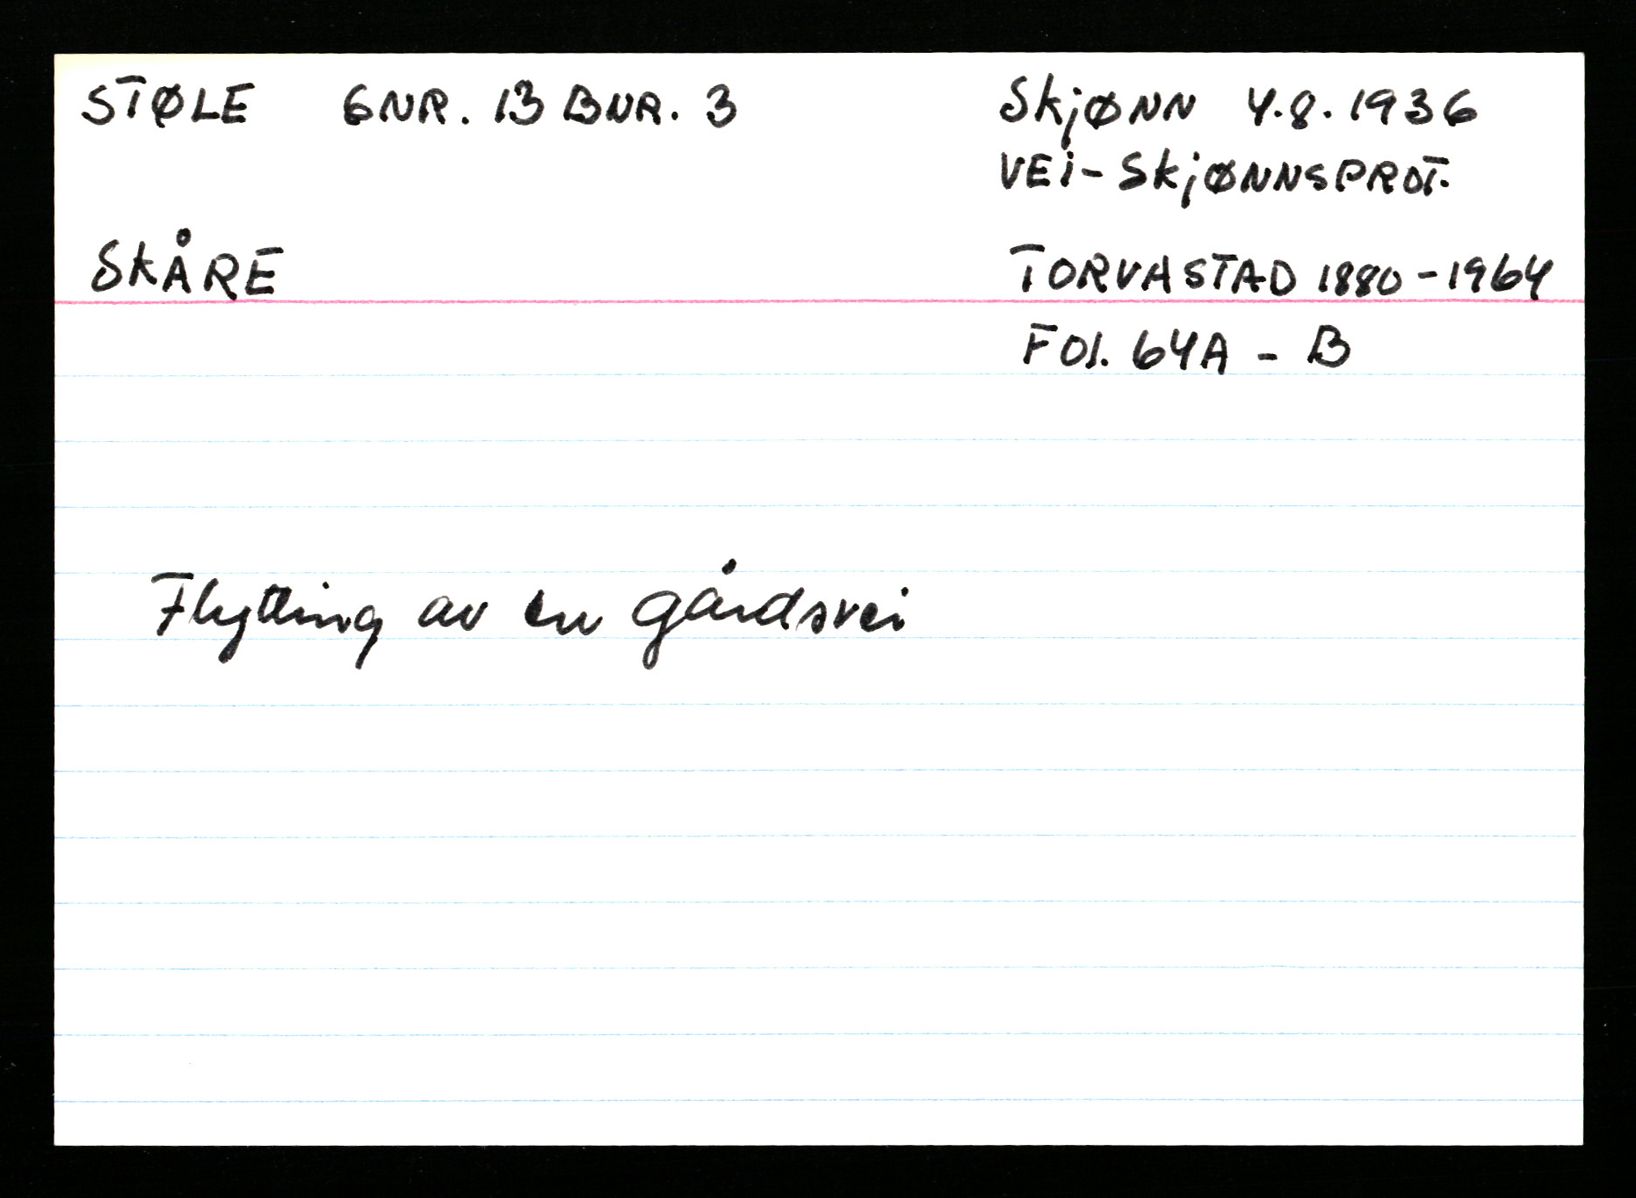 STØLE GNR. 13 BNR. 3 SkjØNN 4.8.1936
VEi-SkjØNNSPROT.
SKÅRE TORVASTAD 1880-1964
FOl. 64A - B
Flytting av en gårdsvei